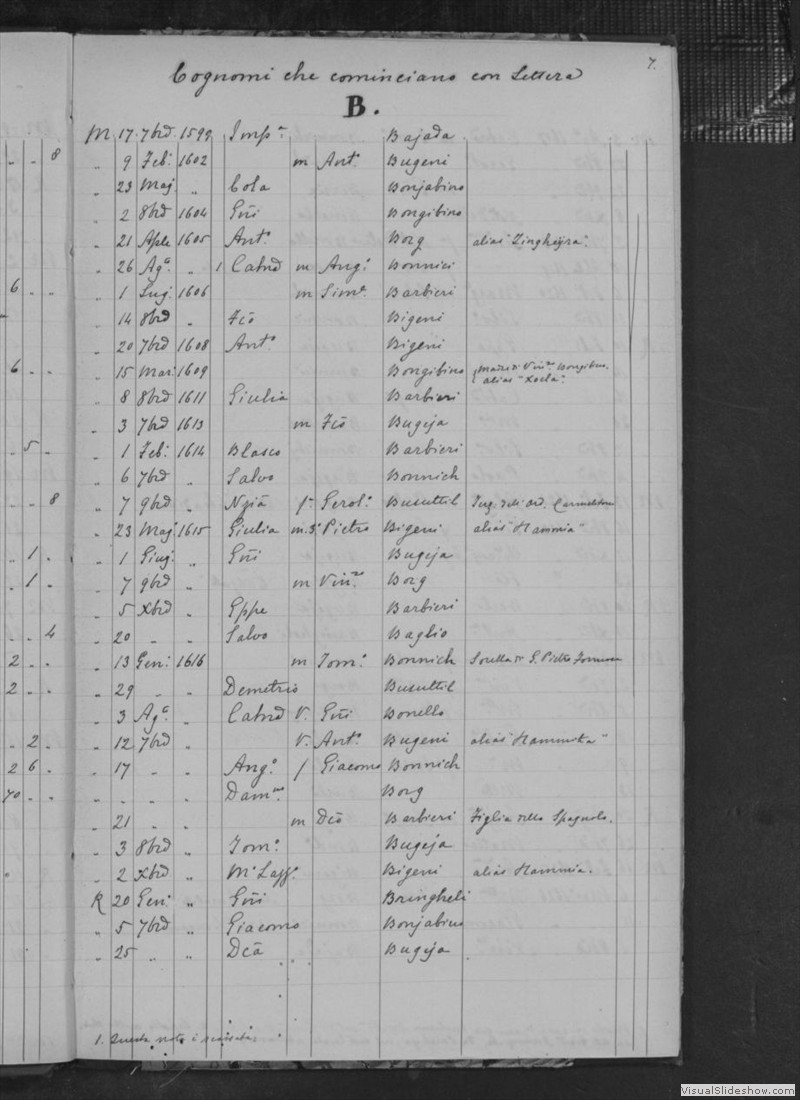 7.
Cognomi che cominciano con Lettera
B.
M 17 7brd 1599 Impª Bajada
8 " 9 Feb: 1602 m Antº Bugeni
" 23 Maj " Cola Bonjabino
" 2 8brd 1604 Gñi Bongibino
" 21 Aple 1605 Antº Borg alias "Zingheyra"
" 26 Agº " 1 Catnd m Angª Bonnici
6 " 1 Lug: 1606 m Simª Barbieri
" 14 8brd " Fcõ Bigeni
" 20 7brd 1608 Antº Bigeni
6 " 15 Mar: 1609 Bongibino madre di Bongibino
alias "Xoela"
" 8 8brd 1611 Giulia Barbieri
" 3 7brd 1613 m Fcõ Bugeja
5 " 1 Feb: 1614 Blasco Barbieri
" 6 7brd " Salvo Bonnich
8 " 7 9brd " Ngiã f. Gerolº Busuttil dell' ord. Carmelitano
" 23 Maj 1615 Giulia m. s. Pietro Bigeni alias "Hammia"
1 " 1 Giug: " Gñi Bugeja
1 " 7 9brd " m Borg
" 5 Xbrd " Eppe Barbieri
4 " 20 " " Salvo Baglio
2 " 13 Gen: 1616 m Tomº Bonnich Sorella di S. Pietro
2 " 29 " " Demetrio Busuttil
" 3 Agº " Catnd V. Gñi Bonello
2 " 12 7brd " V. Antº Bugeni alias "Hammita"
2 6 " 17 " " Angº f Giacomo Bonnich
70 " " " " Damnº Borg
" 21 " " m Dcõ Barbieri Figlia dello Spagnolo.
" 3 8brd " Tomº Bugeja
" 2 Xbrd " Mº Bigeni alias Hammia.
R 20 Gen: " Gñi Bringheli
" 5 7brd " Giacomo Bonjabino
" 25 " " Dcã Bugeja
1. Questa nota è
VisualSlideshow.com